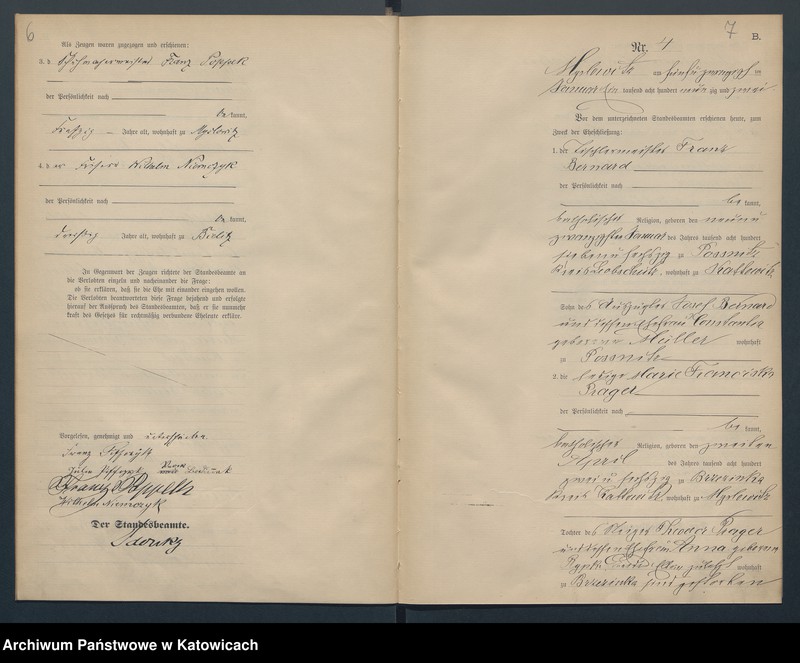 6
Als Zeugen waren zugezogen und erschienen:
3. d Schuhmachermeister Franz Poppek
der Persönlichkeit nach
be kannt,
Jahre alt, wohnhaft zu Myslowitz
4. der Wilhelm Niemczyk
der Persönlichkeit nach
be kannt,
dreißig Jahre alt, wohnhaft zu Bielitz
In Gegenwart der Zeugen richtete der Standesbeamte an
die Verlobten einzeln und nacheinander die Frage:
ob sie erklären, daß sie die Ehe mit einander eingehen wollen.
Die Verlobten beantworteten diese Frage bejahend und erfolgte
hierauf der Ausspruch des Standesbeamten, daß er sie nunmehr
kraft des Gesetzes für rechtmäßig verbundene Eheleute erkläre.
Vorgelesen, genehmigt und unterschrieben
Franz
Julie
Franz
Wilhelm Niemczyk
Der Standesbeamte.
7
B.
Nr. 4
Myslowitz am fünf u zwanzigsten
Januar tausend acht hundert neun zig und zwei
Vor dem unterzeichneten Standesbeamten erschienen heute, zum
Zweck der Eheschließung:
1. der Tischlermeister Franz
Bernard
der Persönlichkeit nach
be kannt,
katholischer Religion, geboren den neun u
zwanzigsten Januar des Jahres tausend acht hundert
sieben u sechszig zu Possnitz
Kreis Leobschütz, wohnhaft zu Kattowitz
Sohn des Auszügler Josef Bernard
und dessen Ehefrau Constantia
geborene Müller wohnhaft
zu Possnitz
2. die ledige Marie Franciska
Prager
der Persönlichkeit nach
be kannt,
katholischer Religion, geboren den zweiten
April des Jahres tausend acht hundert
zwei u sechszig zu Brzezinka
Kreis Kattowitz, wohnhaft zu Myslowitz
Tochter des Theodor Prager
und dessen Ehefrau Anna geborene
zuletzt wohnhaft
zu Brzezinka und gestorben
Archiwum Państwowe w Katowicach